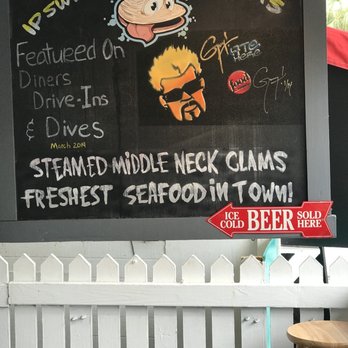 Featureed On
Diners
Drive-Ins
& Dives
March 2019
STEAMED MIDDLE NECK CLAMS
FRESHEST SEAFOOD in TOWN!
ICE COLD BEER SOLD HERE